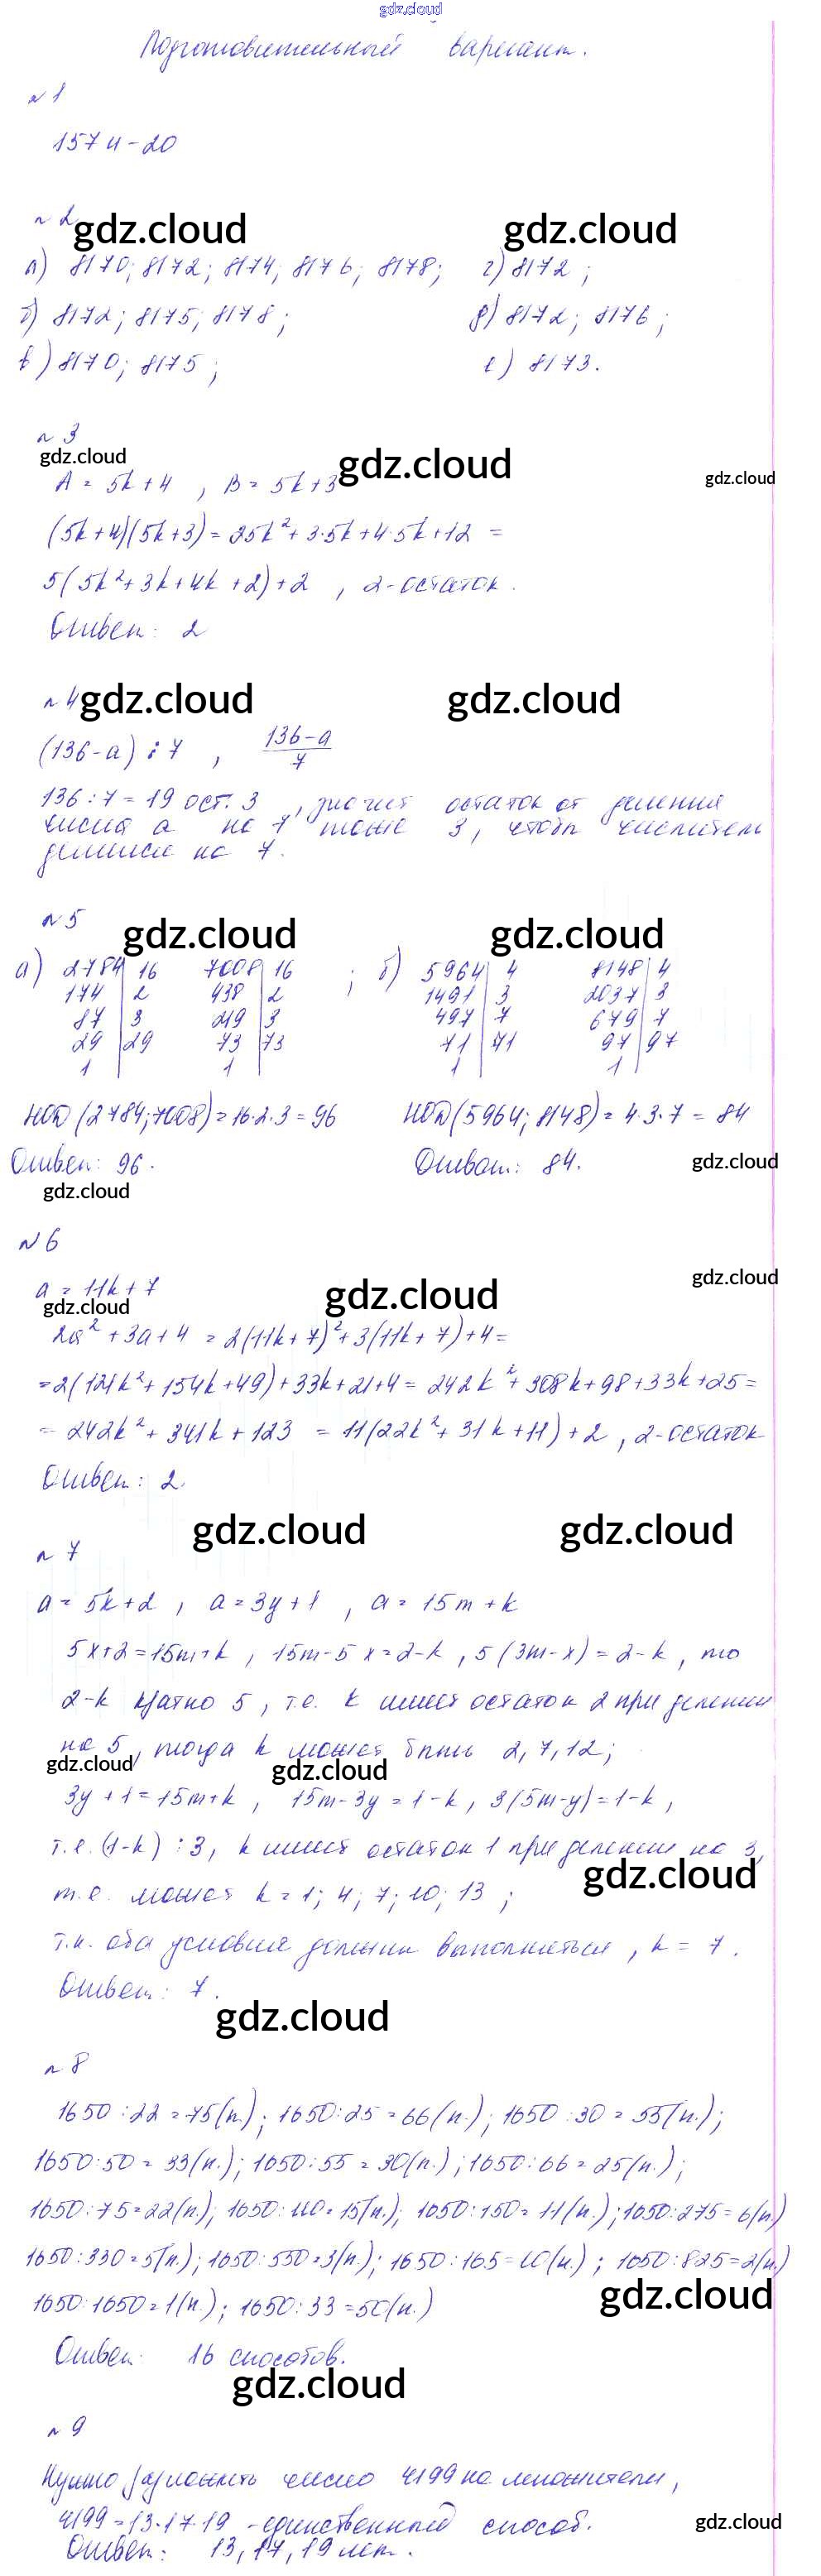 gdz.cloud
Подготовительный вариант.
n 1
157 n - 20
n 2
gdz.cloud gdz.cloud
а) 8170; 8172; 8174; 8176; 8178; г) 8172;
б) 8172; 8175; 8178; д) 8172; 8176;
в) 8170; 8175; е) 8173.
n 3
gdz.cloud gdz.cloud gdz.cloud
A = 5k + 4 , B = 5k + 3
(5k+4)(5k+3) = 25k² + 3·5k + 4·5k + 12 =
5(5k² + 3k + 4k + 2) + 2 , 2 - остаток.
Ответ: 2
n 4 gdz.cloud gdz.cloud
(136 - a) ⋮ 7 , (136 - a)/7
136 : 7 = 19 ост. 3 , значит остаток от деления
числа a на 7 тоже 3, чтобы числитель
делился на 7.
n 5
gdz.cloud gdz.cloud
а) 2784 | 16 7008 | 16 ; б) 5964 | 4 8148 | 4
174 | 2 438 | 2 1491 | 3 2037 | 3
87 | 3 219 | 3 497 | 7 679 | 7
29 | 29 73 | 73 71 | 71 97 | 97
1 1 1 1
НОД (2784; 7008) = 16·2·3 = 96 НОД (5964; 8148) = 4·3·7 = 84
Ответ: 96. Ответ: 84. gdz.cloud
gdz.cloud
N 6
a = 11k + 7 gdz.cloud gdz.cloud
gdz.cloud
2a² + 3a + 4 = 2(11k + 7)² + 3(11k + 7) + 4 =
= 2(121k² + 154k + 49) + 33k + 21 + 4 = 242k² + 308k + 98 + 33k + 25 =
= 242k² + 341k + 123 = 11(22k² + 31k + 11) + 2 , 2 - остаток
Ответ: 2.
gdz.cloud gdz.cloud
n 7
a = 5k + 2 , a = 3y + 1 , a = 15m + k
5x + 2 = 15m + k , 15m - 5x = 2 - k , 5(3m - x) = 2 - k , то
2 - k кратно 5 , т.е. k имеет остаток 2 при делении
на 5 , тогда k может быть 2, 7, 12;
gdz.cloud gdz.cloud
3y + 1 = 15m + k , 15m - 3y = 1 - k , 3(5m - y) = 1 - k ,
т.е. (1 - k) ⋮ 3 , k имеет остаток 1 при делении на 3,
gdz.cloud
т.е. может k = 1; 4; 7; 10; 13 ;
т.к. оба условия должны выполняться , k = 7.
Ответ: 7.
gdz.cloud
n 8
1650 : 22 = 75(п.) ; 1650 : 25 = 66(п.) ; 1650 : 30 = 55(п.) ;
1650 : 50 = 33(п.) ; 1650 : 55 = 30(п.) ; 1650 : 66 = 25(п.) ;
1650 : 75 = 22(п.) ; 1650 : 110 = 15(п.) ; 1650 : 150 = 11(п.) ; 1650 : 275 = 6(п.)
1650 : 330 = 5(п.) ; 1650 : 550 = 3(п.) ; 1650 : 165 = 10(п.) ; 1650 : 825 = 2(п.)
1650 : 1650 = 1(п.) ; 1650 : 33 = 50(п.) gdz.cloud
Ответ: 16 способов.
gdz.cloud
n 9
Нужно разложить число 4199 на множители,
4199 = 13·17·19 - единственный способ. gdz.cloud
Ответ: 13, 17, 19 лет.